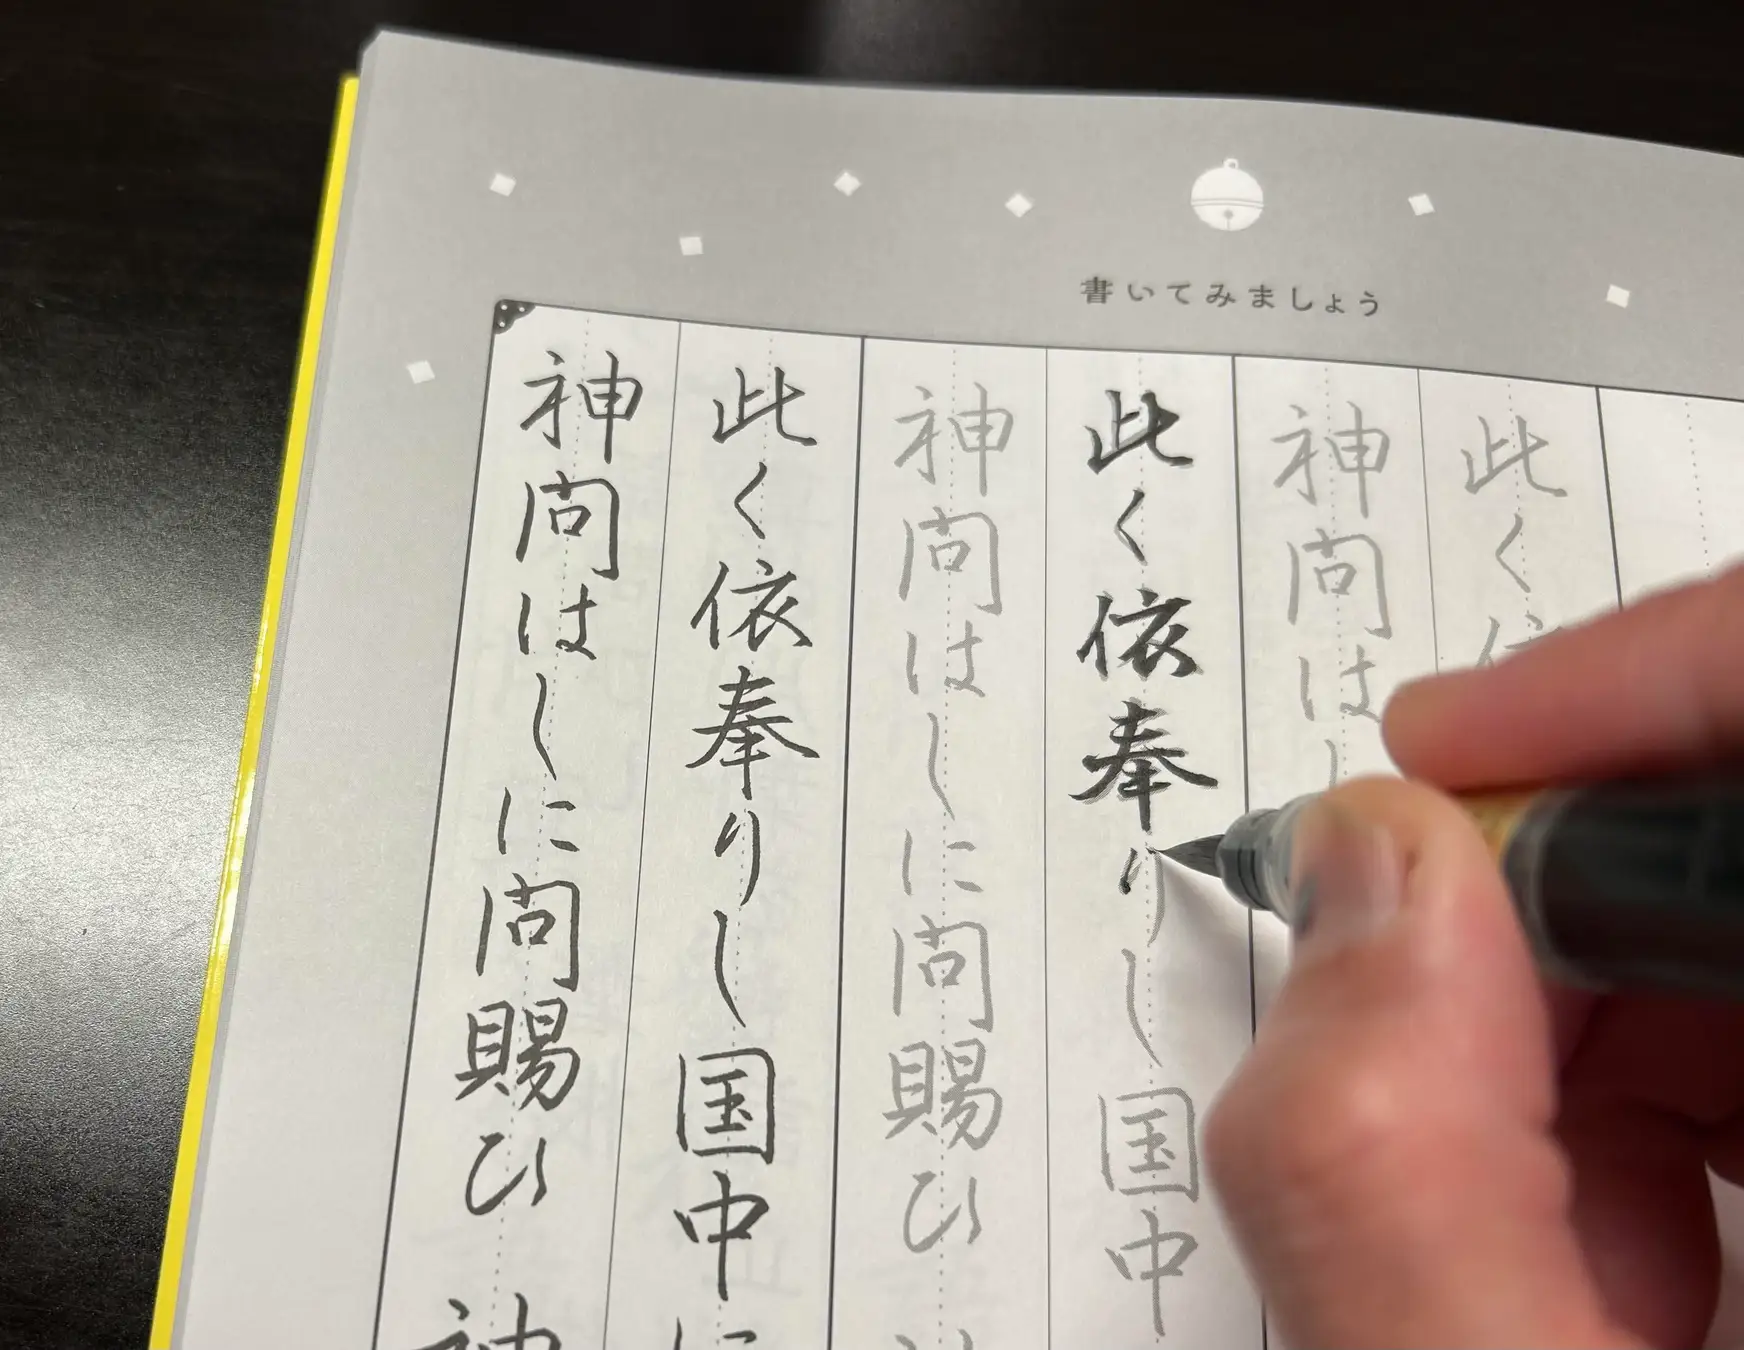 書いてみましょう
此く依
神問はし
此く依奉りし国中
神問はしに問賜ひ
此く依奉りし国中に
神問はしに問賜ひ 神